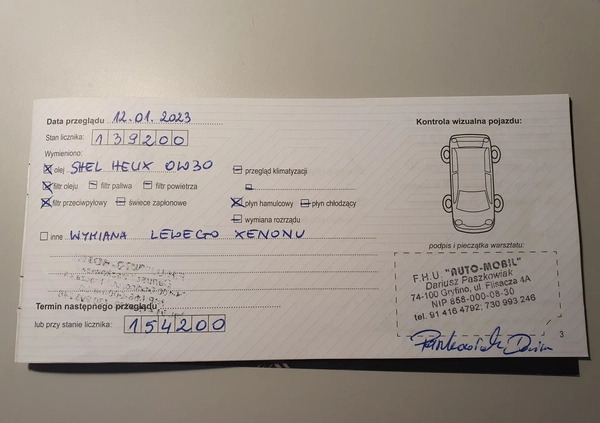 Data przeglądu 12.01.2023
Kontrola wizualna pojazdu:
Stan licznika: 139200
Wymieniono:
olej SHEL HELIX 0W30
przegląd klimatyzacji
filtr oleju filtr paliwa filtr powietrza
filtr przeciwpyłowy świece zapłonowe
płyn hamulcowy płyn chłodzący
wymiana rozrządu
inne WYMIANA LEWEGO XENONU
podpis i pieczątka warsztatu:
F.H.U. "AUTO-MOBIL"
Dariusz Paszkowiak
74-100 Gryfino, ul. Flisacza 4A
NIP 858-000-08-30
tel. 91 416 4792; 730 993 246
Termin następnego przeglądu
lub przy stanie licznika: 154200
3